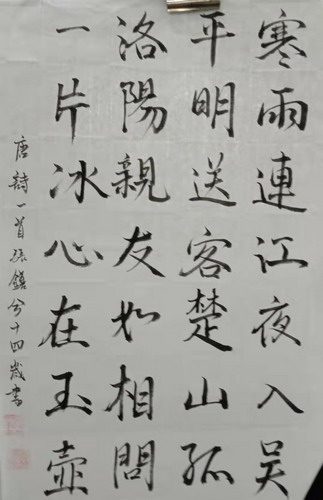 寒雨連江夜入吴
平明送客楚山孤
洛陽親友如相問
一片冰心在玉壺
唐詩一首張鎮兮十四歲書